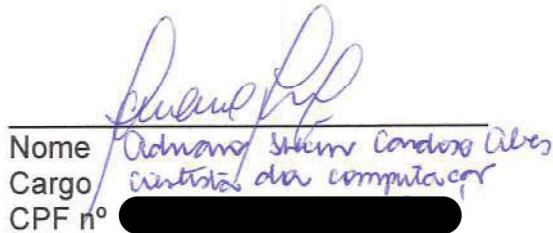 Nome Adriano Cardoso Alves
Cargo cientista da computação
CPF nº